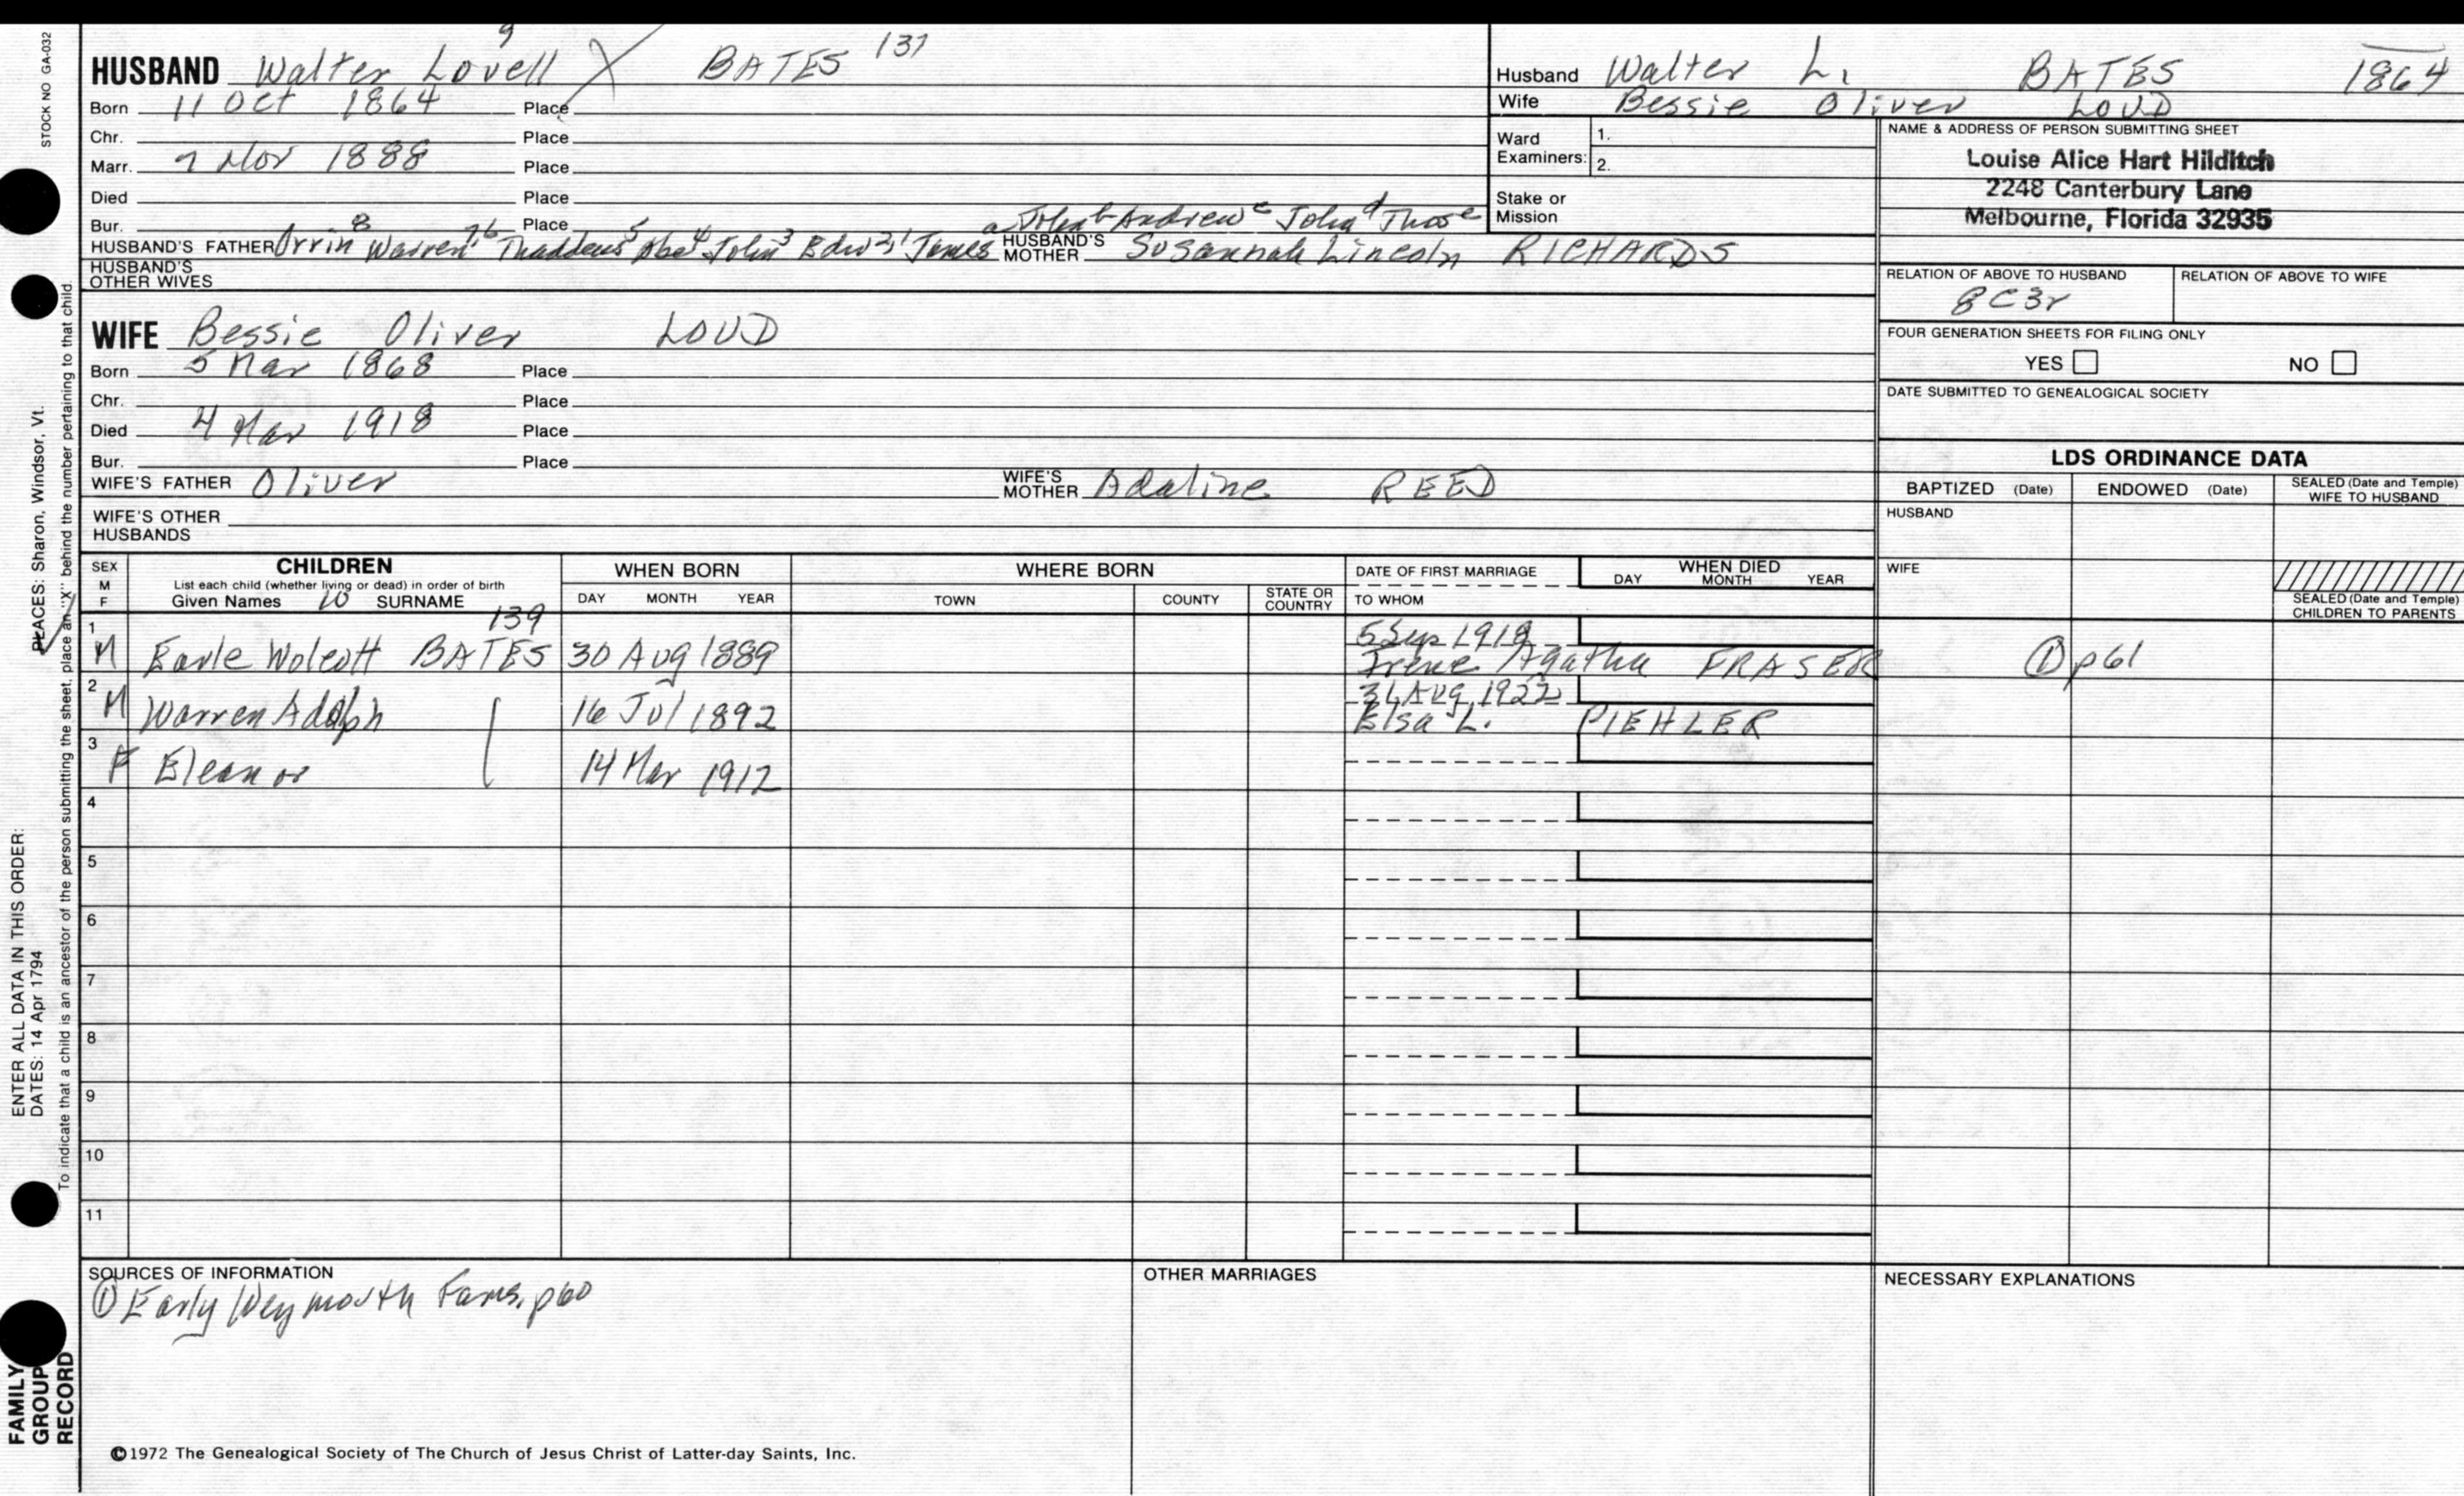 STOCK NO GA-032
HUSBAND Walter Lovell 9 X BATES 137
Born 11 Oct 1864 Place
Chr. Place
Marr. 7 Nov 1888 Place
Died Place
Bur. Place
HUSBAND'S FATHER Orrin 8 Warren, 7 6 Thaddeus 5 Abel 4 John 3 Edw 2, 1 James a John b Andrew c John d Thos e
HUSBAND'S MOTHER Susannah Lincoln RICHARDS
HUSBAND'S OTHER WIVES
WIFE Bessie Oliver LOUD
Born 5 Mar 1868 Place
Chr. Place
Died 4 Mar 1918 Place
Bur. Place
WIFE'S FATHER Oliver WIFE'S MOTHER Adaline REED
WIFE'S OTHER HUSBANDS
Husband Walter L. BATES 1864
Wife Bessie Oliver LOUD
Ward Examiners: 1. 2.
Stake or Mission
NAME & ADDRESS OF PERSON SUBMITTING SHEET
Louise Alice Hart Hilditch
2248 Canterbury Lane
Melbourne, Florida 32935
RELATION OF ABOVE TO HUSBAND RELATION OF ABOVE TO WIFE
8C3r
FOUR GENERATION SHEETS FOR FILING ONLY
YES NO
DATE SUBMITTED TO GENEALOGICAL SOCIETY
LDS ORDINANCE DATA
BAPTIZED (Date) ENDOWED (Date) SEALED (Date and Temple) WIFE TO HUSBAND
HUSBAND
WIFE
SEALED (Date and Temple) CHILDREN TO PARENTS
SEX M F CHILDREN WHEN BORN WHERE BORN DATE OF FIRST MARRIAGE WHEN DIED
List each child (whether living or dead) in order of birth
Given Names 10 SURNAME DAY MONTH YEAR TOWN COUNTY STATE OR COUNTRY TO WHOM DAY MONTH YEAR
139
1 M Earle Wolcott BATES 30 Aug 1889 5 Sep 1918 Irene Agatha FRASER ① p61
2 M Warren Adolph 16 Jul 1892 31 Aug 1922 Elsa L. PIEHLER
3 F Eleanor 14 Mar 1912
4
5
6
7
8
9
10
11
SOURCES OF INFORMATION
① Early Weymouth Fams, p60
OTHER MARRIAGES
NECESSARY EXPLANATIONS
©1972 The Genealogical Society of The Church of Jesus Christ of Latter-day Saints, Inc.
ENTER ALL DATA IN THIS ORDER:
DATES: 14 Apr 1794 PLACES: Sharon, Windsor, Vt.
To indicate that a child is an ancestor of the person submitting the sheet, place an "X" behind the number pertaining to that child.
FAMILY
GROUP
RECORD